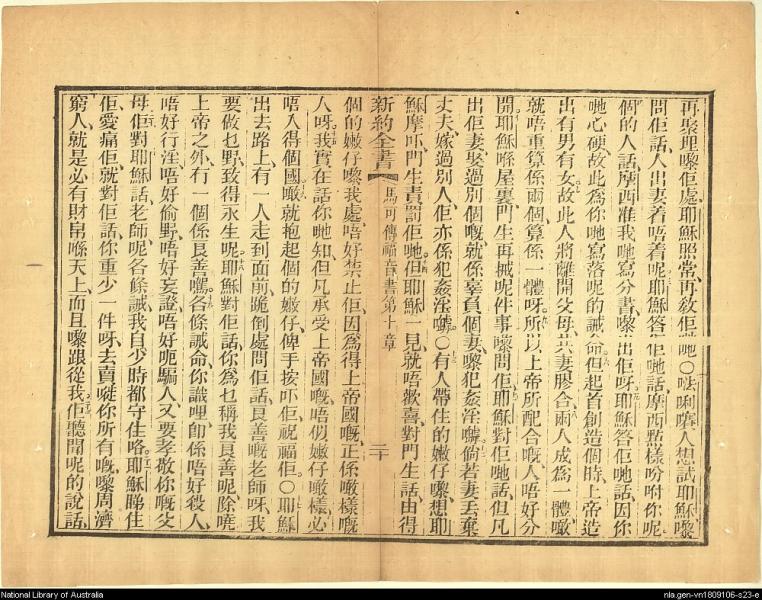 再聚埋嚟佢處耶穌照常再敎佢哋〇𠵽唎㘔人想試耶穌嚟
問佢話人出妻着唔着呢耶穌答佢哋話摩西點樣吩咐你呢
個的人話摩西准我哋寫分書嚟出佢呀耶穌答佢哋話因你
哋心硬故此為你哋寫落呢的誡命但起首創造個時上帝造
出有男有女故此人將離開父母共妻膠合兩人成為一體噉
就唔重算係兩個算係一體呀所以上帝所配合嘅人唔好分
開耶穌喺屋裏門生再摵呢件事嚟問佢耶穌對佢哋話但凡
出佢妻娶過別個嘅就係辜負個妻嚟犯姦淫嘑倘若妻丟棄
丈夫嫁過別人佢亦係犯姦淫嘑〇有人帶住的嫩仔嚟想耶
穌摩吓門生責罰佢哋但耶穌一見就唔歡喜對門生話由得
新約全書 馬可傳福音書第十章 二十
個的嫩仔嚟我處唔好禁止佢因為得上帝國嘅正係噉樣嘅
人呀我實在話你哋知但凡承受上帝國嘅唔似嫩仔噉樣必
唔入得個國噉就抱起個的嫩仔俾手按吓佢祝福佢〇耶穌
出去路上有一人走到面前跪倒處問佢話良善嘅老師呀我
要做乜野致得永生呢耶穌對佢話你為乜稱我良善呢除嘵
上帝之外有一個係良善嘿各條誡命你識哩卽係唔好殺人
唔好行淫唔好偷野唔好妄證唔好呃騙人又要孝敬你嘅父
母佢對耶穌話老師呢各條誡我自少時都守住咯耶穌睇住
佢愛痛佢就對佢話你重少一件呀去賣嘥你所有嘅嚟周濟
窮人就是必有財帛喺天上而且嚟跟從我佢聽聞呢的說話
National Library of Australia
nla.gen-vn1809106-s23-e